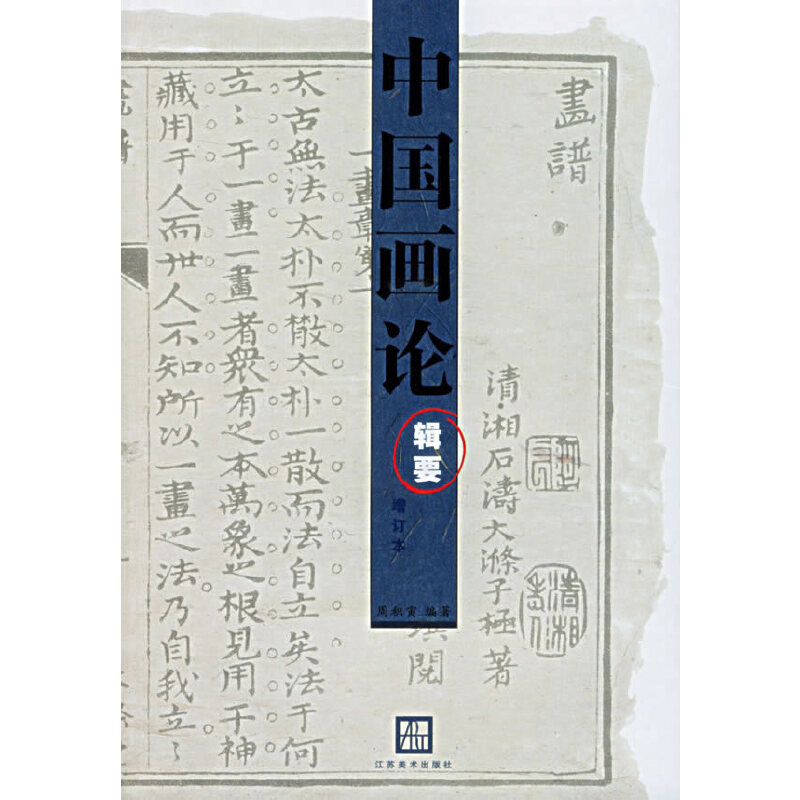 中国画论
辑要
增订本
周积寅 编著
江苏美术出版社
畫譜
清·湘石濤大滌子極著
閱
一畫章第一
太古無法太朴不散太朴一散而法自立矣法于何
立〻于一畫一畫者眾有之本萬象之根見用于神
藏用于人而世人不知所以一畫之法乃自我立〻